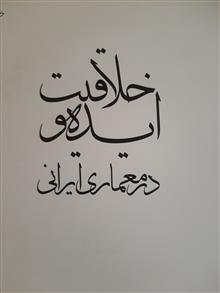 خلاقیت
ایده و
در معماری ایرانی